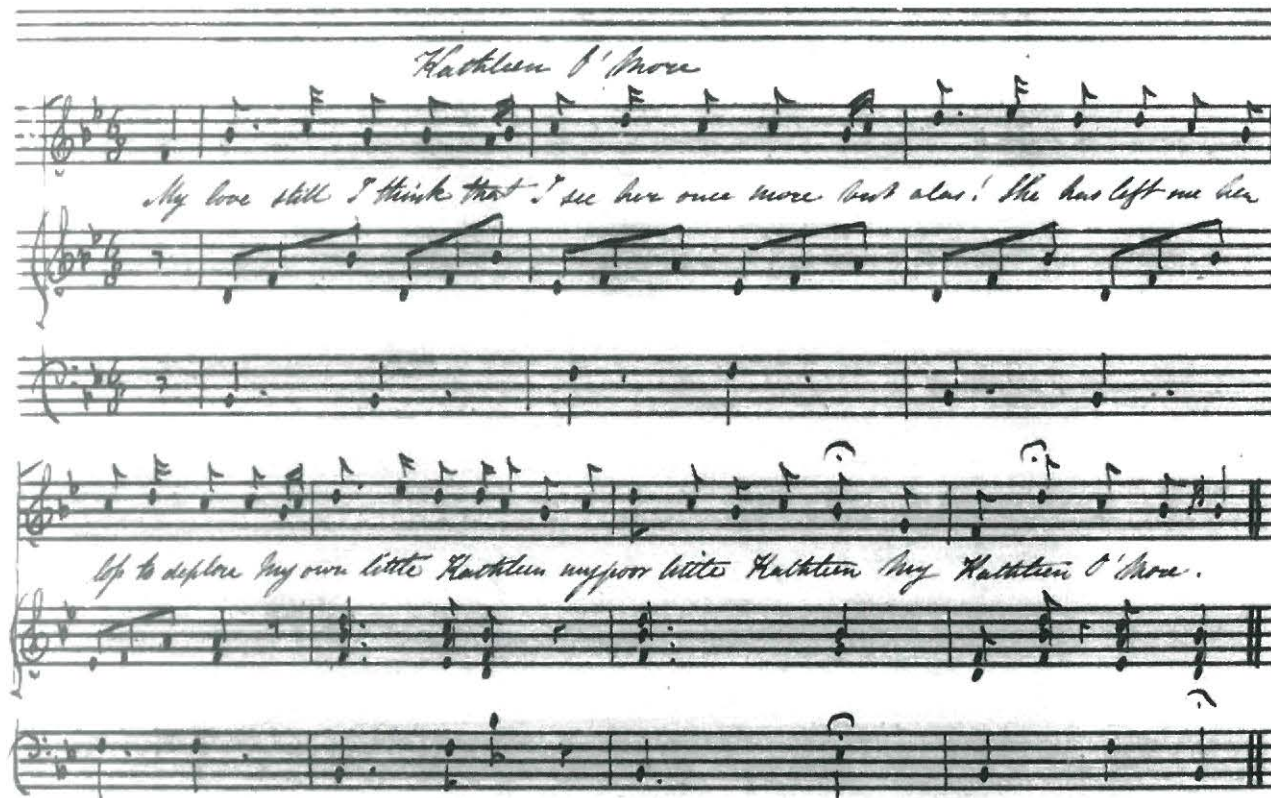 Kathleen O' More
My love still I think that I see her once more but alas! She has left me her
loss to deplore My own little Kathleen my poor little Kathleen My Kathleen O' More.